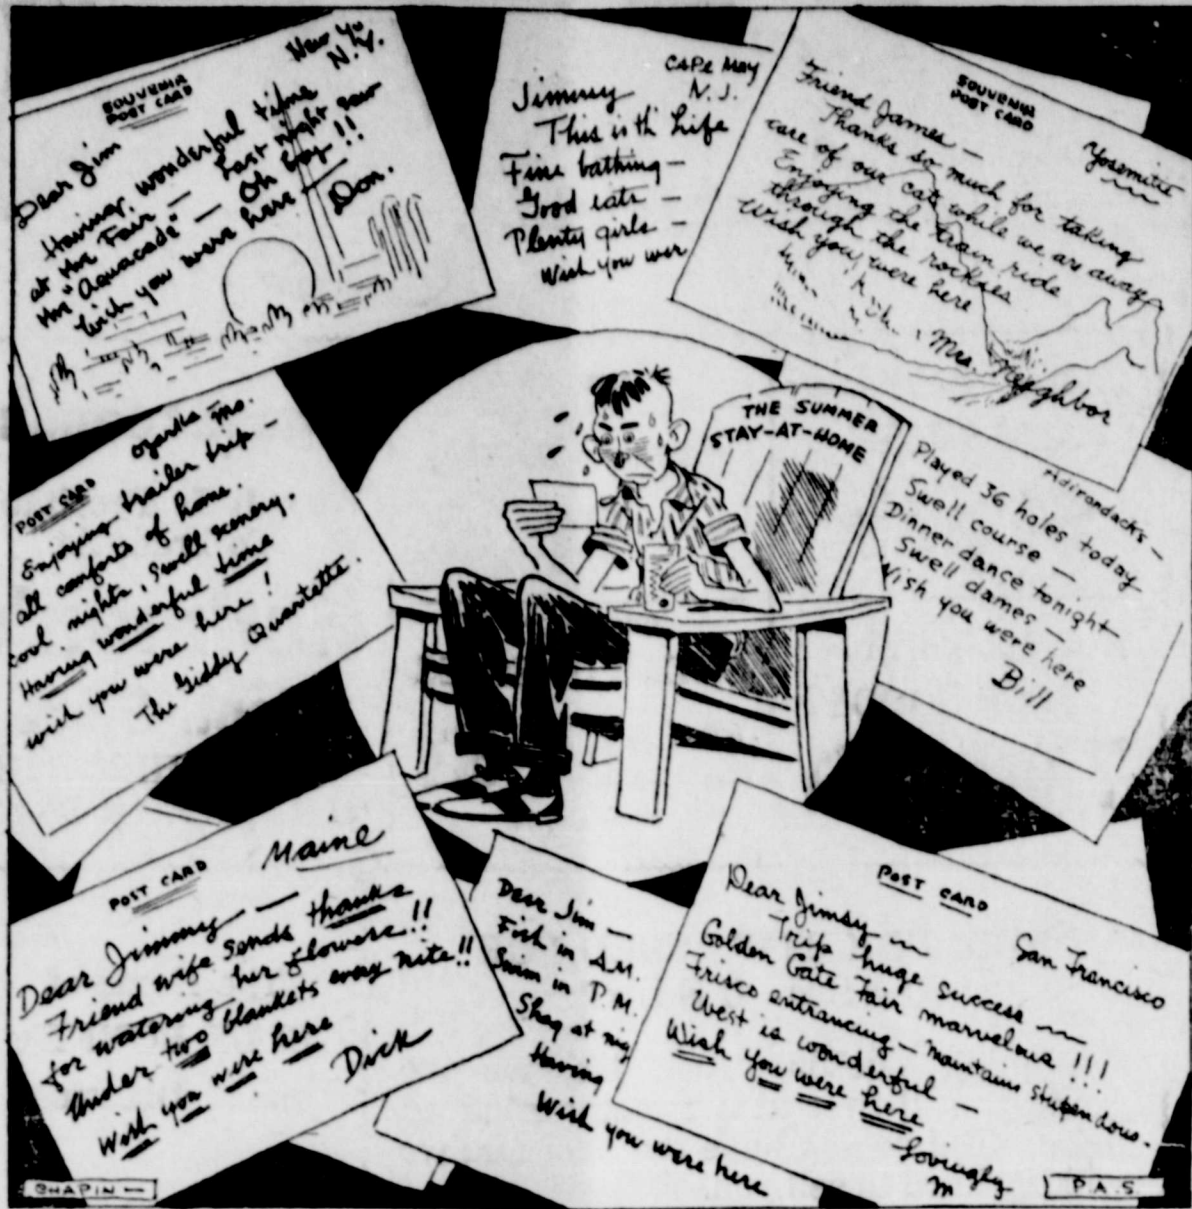 New Yo
N.Y.
SOUVENIR
POST CARD
Dear Jim
Having wonderful time
at the Fair — Last night saw
the "Aquacade" — Oh boy!!
Wish you were here —
Don.
CAPE MAY
N.J.
Jimmy
This is th' life
Fine bathing —
Good eats —
Plenty girls —
Wish you wer
SOUVENIR
POST CARD
Yosemite
Friend James —
Thanks so much for taking
care of our cat while we are away
Enjoying the train ride
through the rockies
Wish you were here
Mrs. Neighbor
POST CARD
Ozarks Mo.
Enjoying trailer trip —
all comforts of home.
cool nights, swell scenery.
Having wonderful time
wish you were here!
The Giddy Quartette.
THE SUMMER
STAY-AT-HOME
Adirondacks —
Played 36 holes today
Swell course —
Dinner dance tonight
Swell dames —
Wish you were here
Bill
POST CARD
Maine
Dear Jimmy —
Friend wife sends thanks
for watering her flowers!!
Under two blankets every nite!!
Wish you were here
Dick
Dear Jim —
Fish in A.M.
Swim in P.M.
Shag at nig
Having
Wish you were here
POST CARD
San Francisco
Dear Jimsy —
Trip huge success —
Golden Gate Fair marvelous!!!
Frisco entrancing — mountains stupendous.
West is wonderful —
Wish you were here
Lovingly
M
CHAPIN —
P.A.S